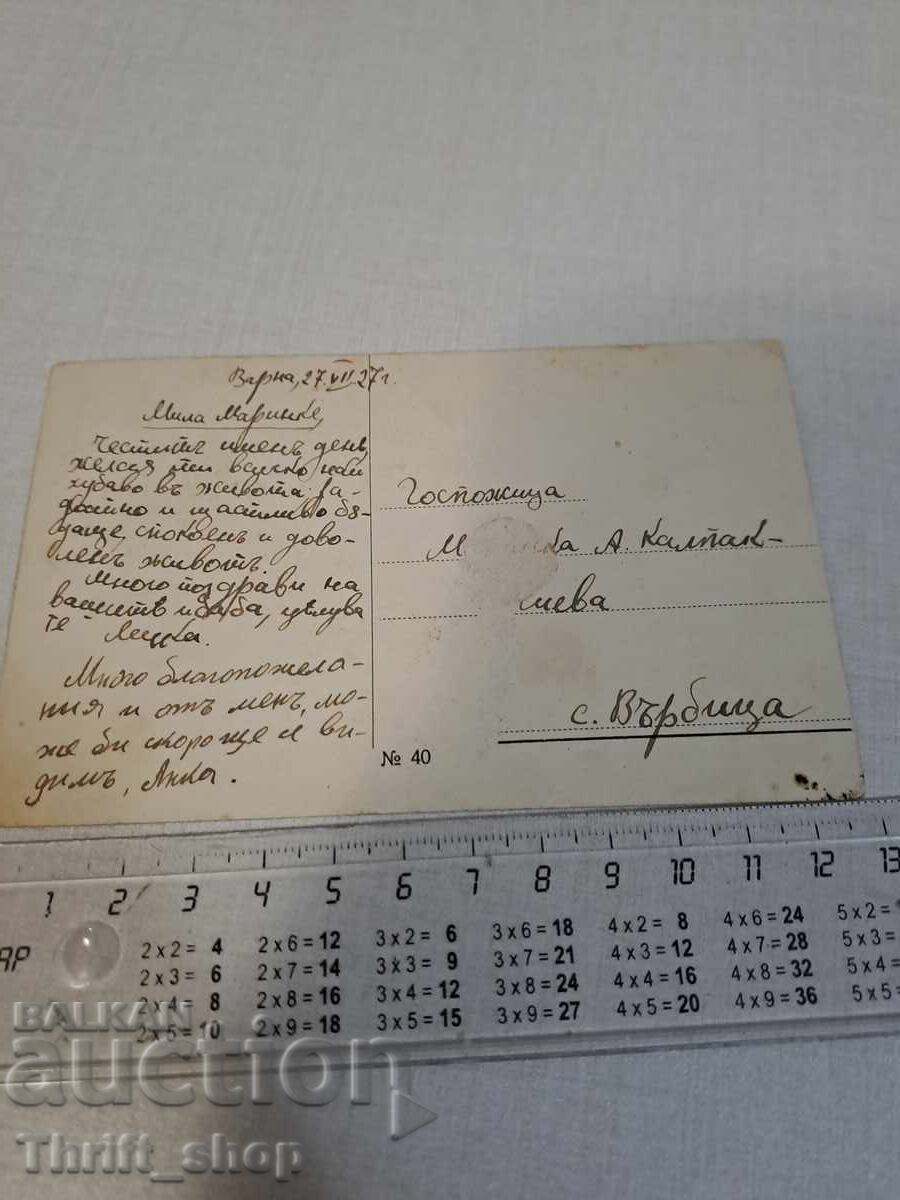 Варна, 27.VII.27 г.
Мила Маринке,
Честитъ именъ день,
желая ти всичко най
хубаво въ живота: ра-
достно и щастливо бѫ-
даще, спокоенъ и дово-
ленъ животъ.
Много поздрави на
вашитѣ и баба, цѣлува
те Лицка.
Много благопожела-
ния и отъ менъ, мо-
же би скоро ще се ви-
димъ, Янка.
Госпожица
М ка А. Калпак-
чиева
с. Върбица
№ 40
1 2 3 4 5 6 7 8 9 10 11 12 13
2 x 2 = 4 2 x 6 = 12 3 x 2 = 6 3 x 6 = 18 4 x 2 = 8 4 x 6 = 24 5 x 2 =
2 x 3 = 6 2 x 7 = 14 3 x 3 = 9 3 x 7 = 21 4 x 3 = 12 4 x 7 = 28 5 x 3 =
2 x 4 = 8 2 x 8 = 16 3 x 4 = 12 3 x 8 = 24 4 x 4 = 16 4 x 8 = 32 5 x 4 =
2 x 5 = 10 2 x 9 = 18 3 x 5 = 15 3 x 9 = 27 4 x 5 = 20 4 x 9 = 36 5 x 5
BALKAN
auction
Thrift_shop